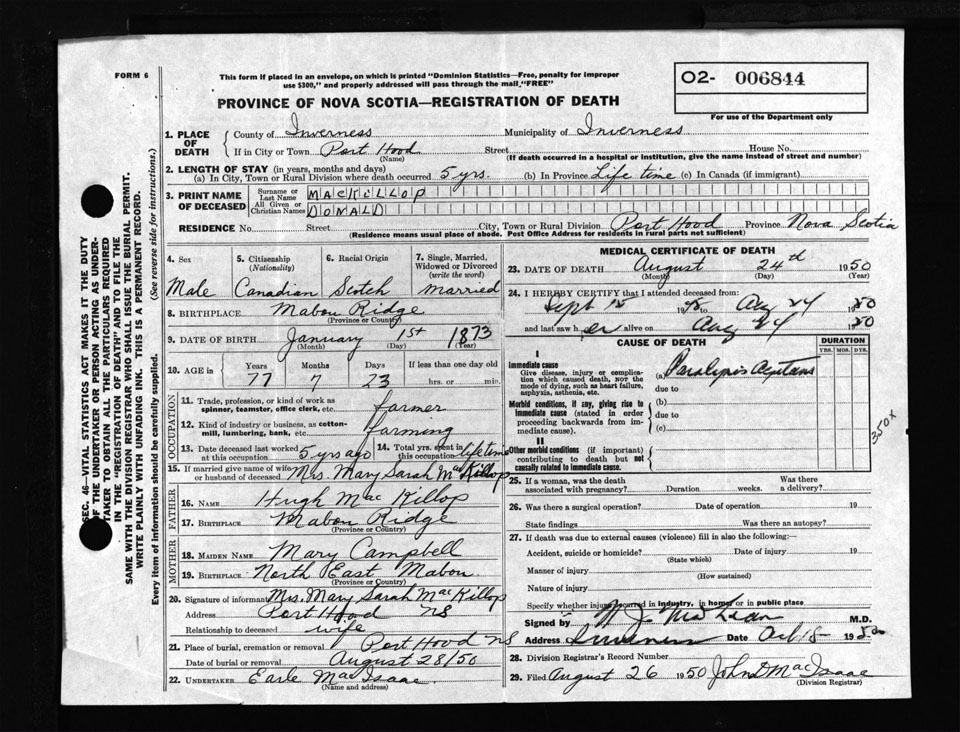 FORM 6
This form if placed in an envelope, on which is printed "Dominion Statistics—Free, penalty for improper
use $300," and properly addressed will pass through the mail "FREE"
O2- 006844
For use of the Department only
PROVINCE OF NOVA SCOTIA—REGISTRATION OF DEATH
1. PLACE OF DEATH { County of Inverness Municipality of Inverness
If in City or Town Port Hood (Name) Street House No.
(If death occurred in a hospital or institution, give the name instead of street and number)
2. LENGTH OF STAY (in years, months and days)
(a) In City, Town or Rural Division where death occurred 5 yrs. (b) In Province Life time (c) In Canada (if immigrant)
3. PRINT NAME OF DECEASED { Surname or Last Name MACKILLOP
All Given or Christian Names DONALD
RESIDENCE No. Street City, Town or Rural Division Port Hood Province Nova Scotia
(Residence means usual place of abode. Post Office Address for residents in rural parts not sufficient)
4. Sex Male
5. Citizenship (Nationality) Canadian
6. Racial Origin Scotch
7. Single, Married, Widowed or Divorced (write the word) married
8. BIRTHPLACE Mabou Ridge
(Province or Country)
9. DATE OF BIRTH January 1st 1873
(Month) (Day) (Year)
10. AGE in { Years 77 Months 7 Days 23 If less than one day old
hrs. or min.
OCCUPATION
11. Trade, profession, or kind of work as spinner, teamster, office clerk, etc. farmer
12. Kind of industry or business, as cotton-mill, lumbering, bank, etc. Farming
13. Date deceased last worked at this occupation 5 yrs ago
14. Total yrs. spent in this occupation lifetime
15. If married give name of wife or husband of deceased Mrs. Mary Sarah MacKillop
FATHER
16. NAME Hugh MacKillop
17. BIRTHPLACE Mabou Ridge
(Province or Country)
MOTHER
18. MAIDEN NAME Mary Campbell
19. BIRTHPLACE North East Mabou
(Province or Country)
20. Signature of informant Mrs. Mary Sarah MacKillop
Address Port Hood NS
Relationship to deceased wife
21. Place of burial, cremation or removal Port Hood NS
Date of burial or removal August 28/50
22. UNDERTAKER Earle MacIsaac
(Name and address)
MEDICAL CERTIFICATE OF DEATH
23. DATE OF DEATH August 24th 1950
(Month) (Day) (Year)
24. I HEREBY CERTIFY that I attended deceased from:
Sept 15 Aug 24 1950
and last saw h er alive on Aug 24 1950
CAUSE OF DEATH
DURATION
YRS. MOS. DYS.
I
Immediate cause
Give disease, injury or complication which caused death, not the mode of dying, such as heart failure, asphyxia, asthenia, etc.
(a) Paralysis Agitans
due to
Morbid conditions, if any, giving rise to immediate cause (stated in order proceeding backwards from immediate cause).
(b)
due to
(c)
II
Other morbid conditions (if important) contributing to death but not causally related to immediate cause.
350X
25. If a woman, was the death associated with pregnancy? Duration weeks. Was there a delivery?
26. Was there a surgical operation? Date of operation 19
State findings Was there an autopsy?
27. If death was due to external causes (violence) fill in also the following:—
Accident, suicide or homicide? Date of injury 19
(State which)
Manner of injury
(How sustained)
Nature of injury
Specify whether injury occurred in industry, in home, or in public place
Signed by M.D.
Address Inverness Date 1950
28. Division Registrar's Record Number
29. Filed August 26 1950 John D MacIsaac
(Division Registrar)
SEC. 46—VITAL STATISTICS ACT MAKES IT THE DUTY
OF THE UNDERTAKER OR PERSON ACTING AS UNDERTAKER TO OBTAIN ALL THE PARTICULARS REQUIRED
IN THE "REGISTRATION OF DEATH" AND TO FILE THE
SAME WITH THE DIVISION REGISTRAR WHO SHALL ISSUE THE BURIAL PERMIT.
WRITE PLAINLY WITH UNFADING INK. THIS IS A PERMANENT RECORD.
Every item of information should be carefully supplied. (See reverse side for instructions.)